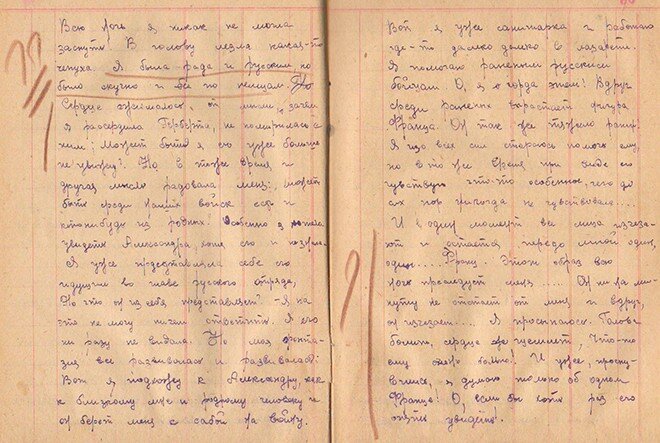 Всю ночь я никак не могла
заснуть. В голову лезла какая-то
чепуха. Я была рада и русским но
было скучно и все по немцам. Но
Сердце сжималось, от мысли, зачем
я рассердила Герберта, не помирилась с
ним; Может быть я его уже больше
не увижу? Но в тоже время и
другая мысль радовала меня: может
быть среди наших войск есть и
кто нибудь из родных! Особенно я хотела
увидеть Александра, хотя его и не знала.
Я уже представляла себе его
идущим во главе русского отряда,
Но что он из себя представляет - я на
это не могу ничем ответить. Я его
ни разу не видала. Но моя фанта-
зия все развивалась и развивалась:
Вот я подхожу к Александру, как
к близкому мне и родному человеку и
он берет меня с собой на войну.
Вот я уже санитарка и работаю
где-то далеко далеко в лазарете.
Я помогаю раненым русским
бойцам. О, я горда этим! Вдруг
среди раненых вырастает фигура
Франца. Он так же тяжело ранен.
Я изо всех сил стараюсь помочь ему,
но в то же время при виде его
чувствую что-то особенное, чего до
сих пор никогда не чувствовала....
И в один момент все лица исчеза-
ют и остается передо мной один,
один..... Франц.. Этот образ всю
ночь преследует меня..... Он ни на ми-
нуту не отстает от меня и вдруг,
он изчезает.... Я просыпаюсь. Голова
болит, сердце же щемит, что-то
ему очень больно! И уже, просну-
вшись, я думаю только об одном
Франце! О, если бы хоть раз его
опять увидеть!